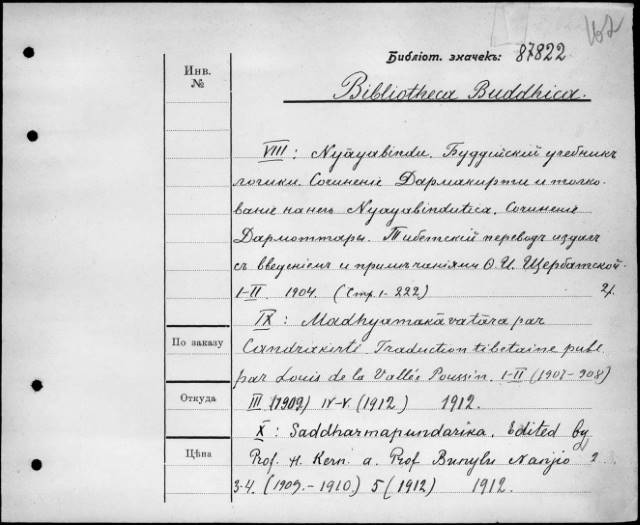 162
Библіот. значекъ: 87822
Инв.
№
Bibliotheca Buddhica.
VIII: Nyāyabindu. Буддійскій учебникъ
логики. Сочиненіе Дармакирти и толко-
ваніе на него Nyāyabindutica. Сочиненіе
Дармоттары. Тибетскій переводъ издалъ
съ введеніемъ и примѣчаніями Ѳ. И. Щербатской.
I-II. 1904. (Стр. 1-222) 2 т.
IX: Madhyamakāvatāra par
По заказу
Candrakīrti. Traduction tibetaine publ.
par Louis de la Vallée Poussin. I-II (1907-908)
Откуда
III (1909) IV-V. (1912) 1912.
X: Saddharmapundarīka. Edited by
Цѣна
Prof. H. Kern a. Prof Bunyiu Nanjio 2
3-4. (1909.-1910) 5 (1912) 1912.